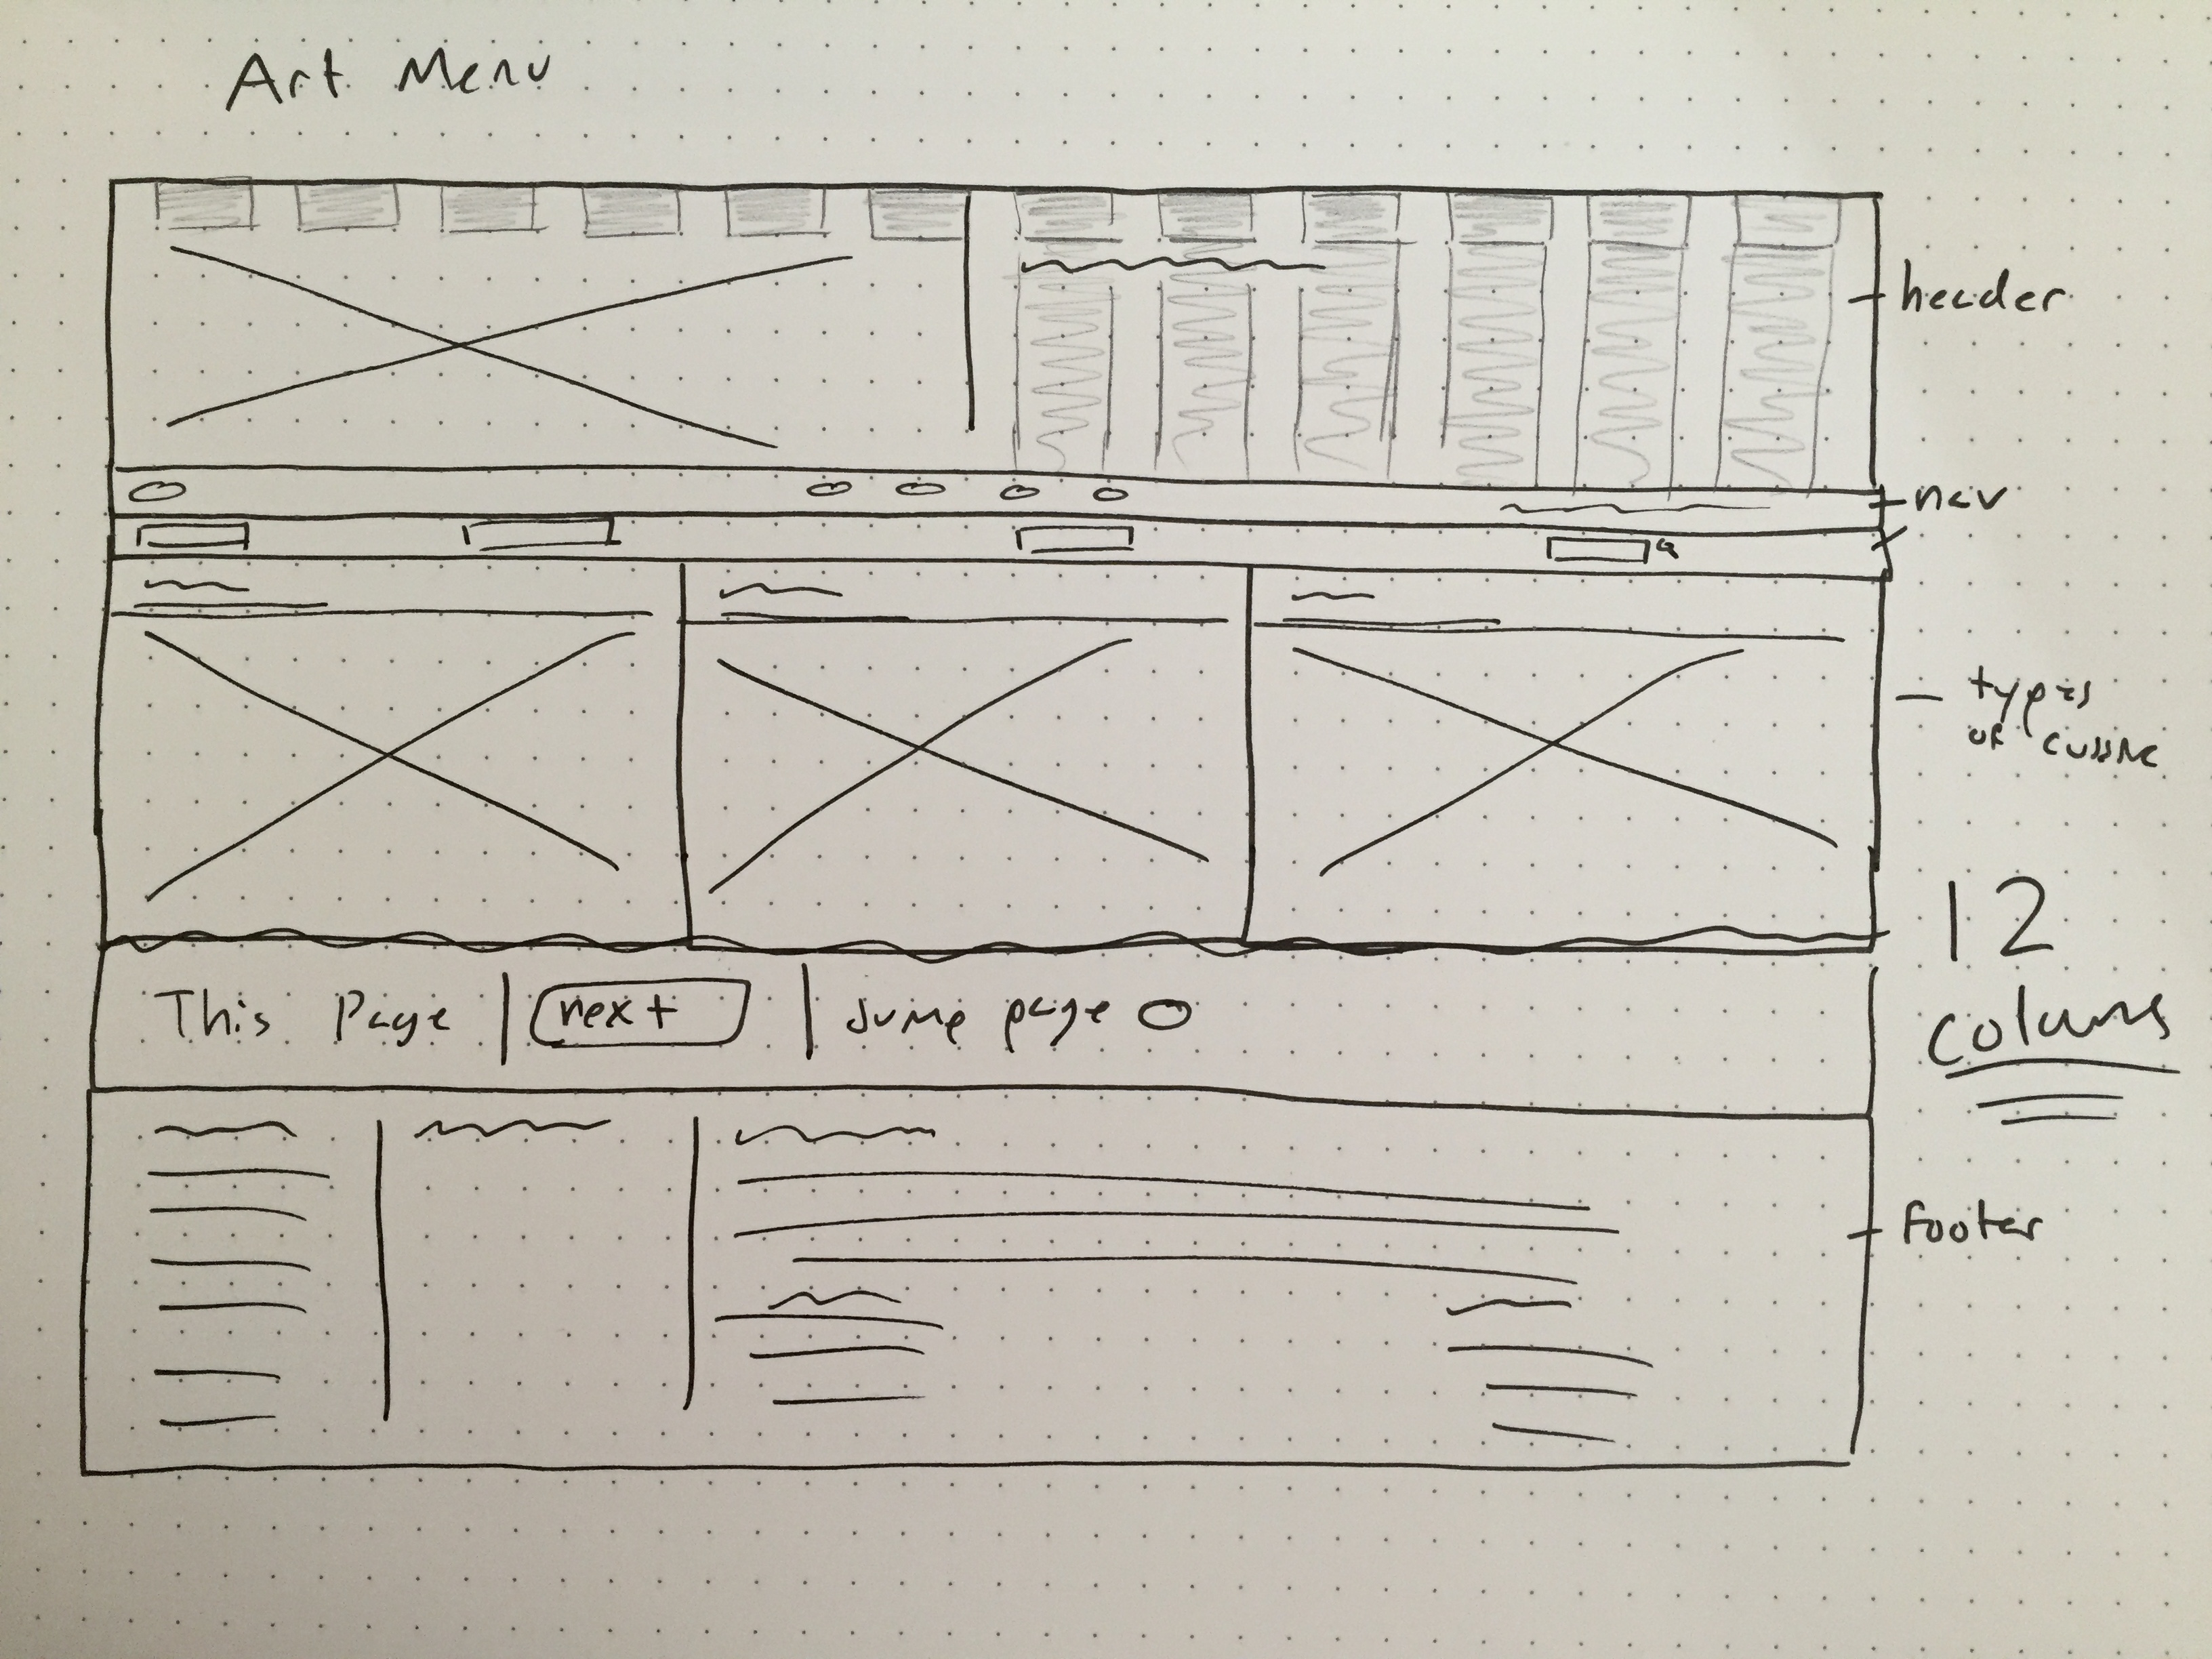 Art Menu
header
nav
types
of cussine
12
colums
This Page | next | Jump page
footer